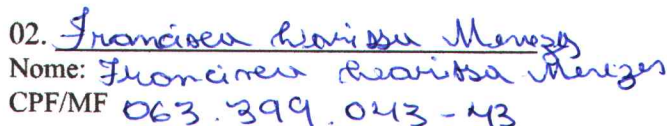 02. Francisca Larissa Menezes
Nome: Francisca Larissa Menezes
CPF/MF 063.399.043-43